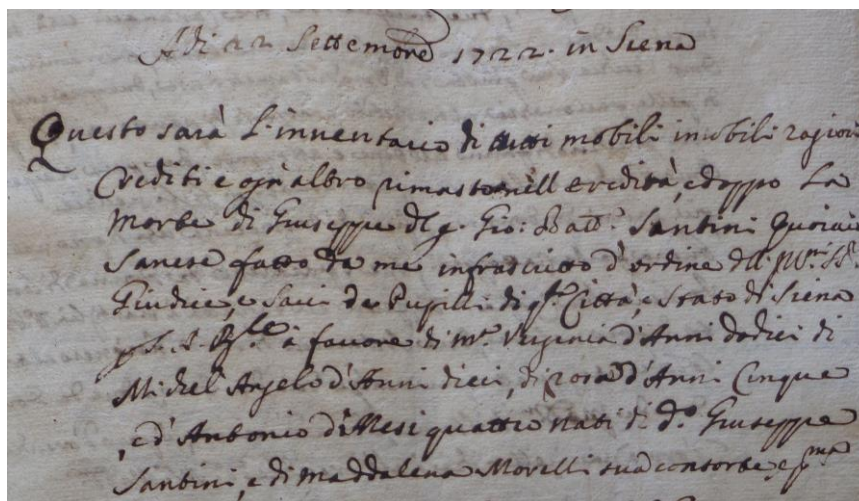 Adi 22 Settembre 1722. in Siena
Questo sarà L'inventario di tutti mobili imobili ragioni
Crediti e ogn altro rimasto nell eredità, e doppo La
morte di Giuseppe del q. Gio: Batt.a Santini Quoiaio
Sanese fatto da me infrascritto d'ordine dell' Ill.mi SS.ri
Giudice, e Savi de Pupilli di q.ta Città, e Stato di Siena
à favore di M.a Verginia d'Anni dodici di
Michel'Angelo d'Anni dieci, di rosa d'Anni Cinque
, ed' Antonio di Mesi quattro nati di d.o Giuseppe
Santini, e di Maddalena Morelli sua consorte, e p.ma